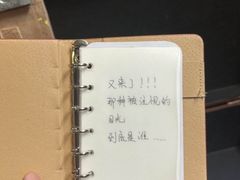 又来了!!!
那种被注视的
目光
到底是谁……